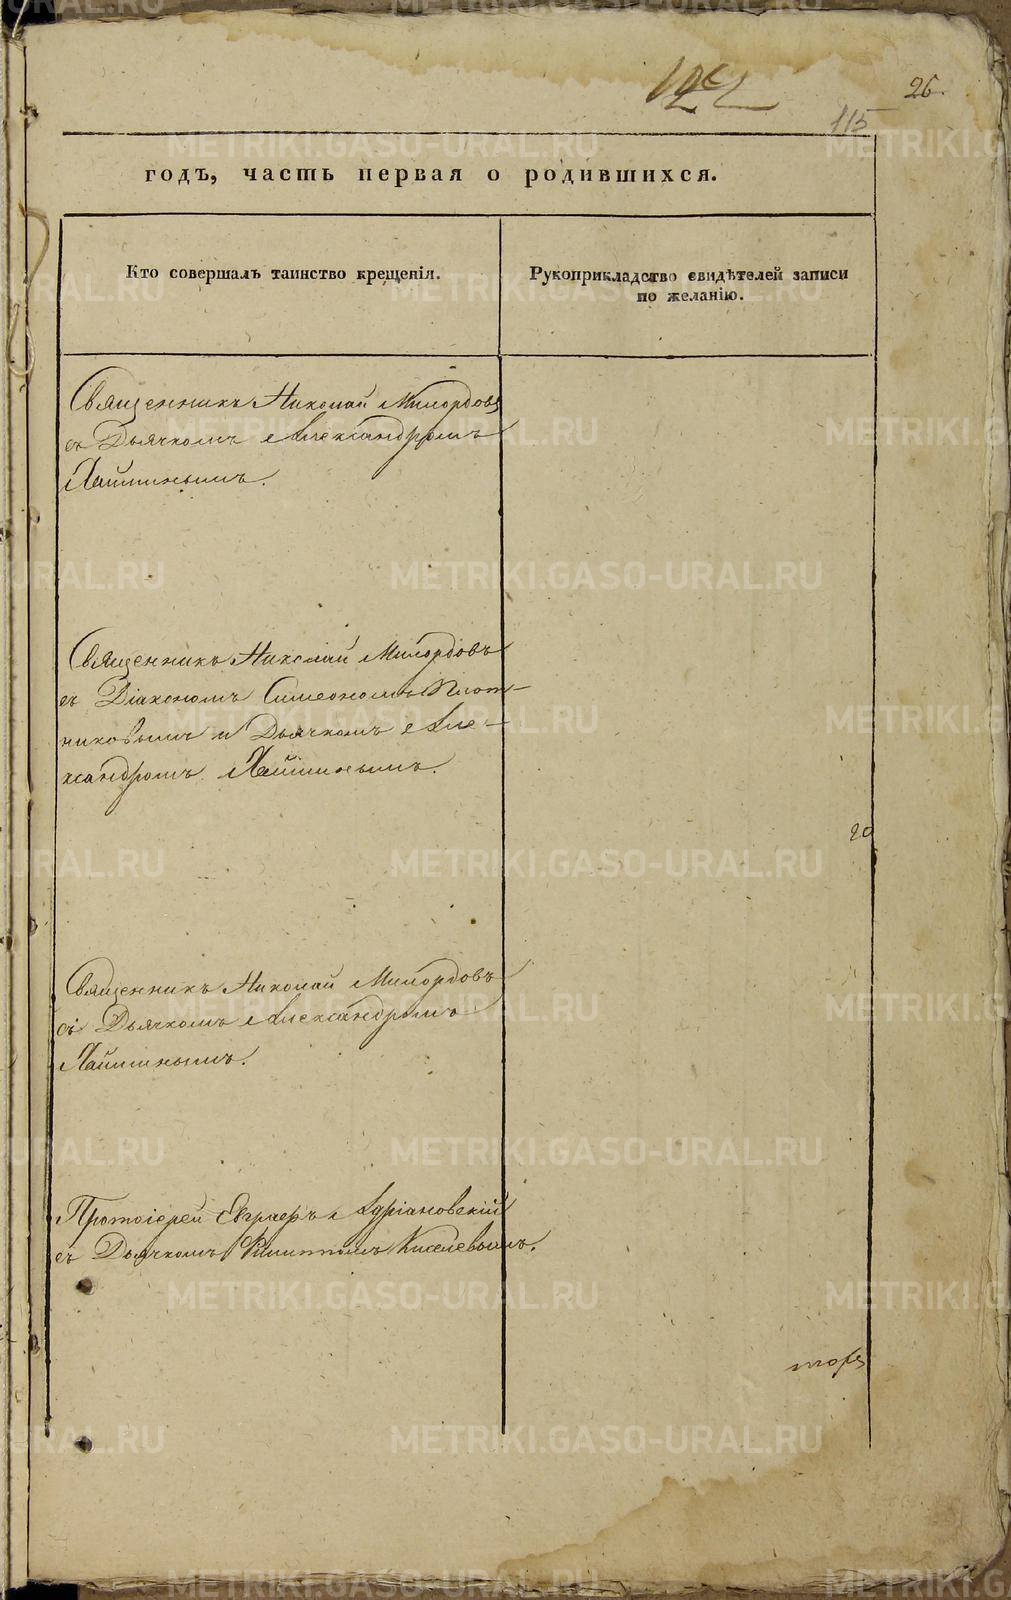 26.
115
годъ, часть первая о родившихся.
Кто совершалъ таинство крещенія.
Рукоприкладство свидѣтелей записи
по желанію.
Священникъ Николай Милордовъ
съ Дьячкомъ Александромъ
Лаптинымъ.
Священникъ Николай Милордовъ
съ Діакономъ Симеономъ Плот-
никовымъ и Дьячкомъ Але-
ксандромъ
20
Священникъ Николай Милордовъ
съ Дьячкомъ Александромъ
Протоіерей Евграфъ Адріановскій
съ Дьячкомъ Филиппомъ Киселевымъ.
METRIKI.GASO-URAL.RU